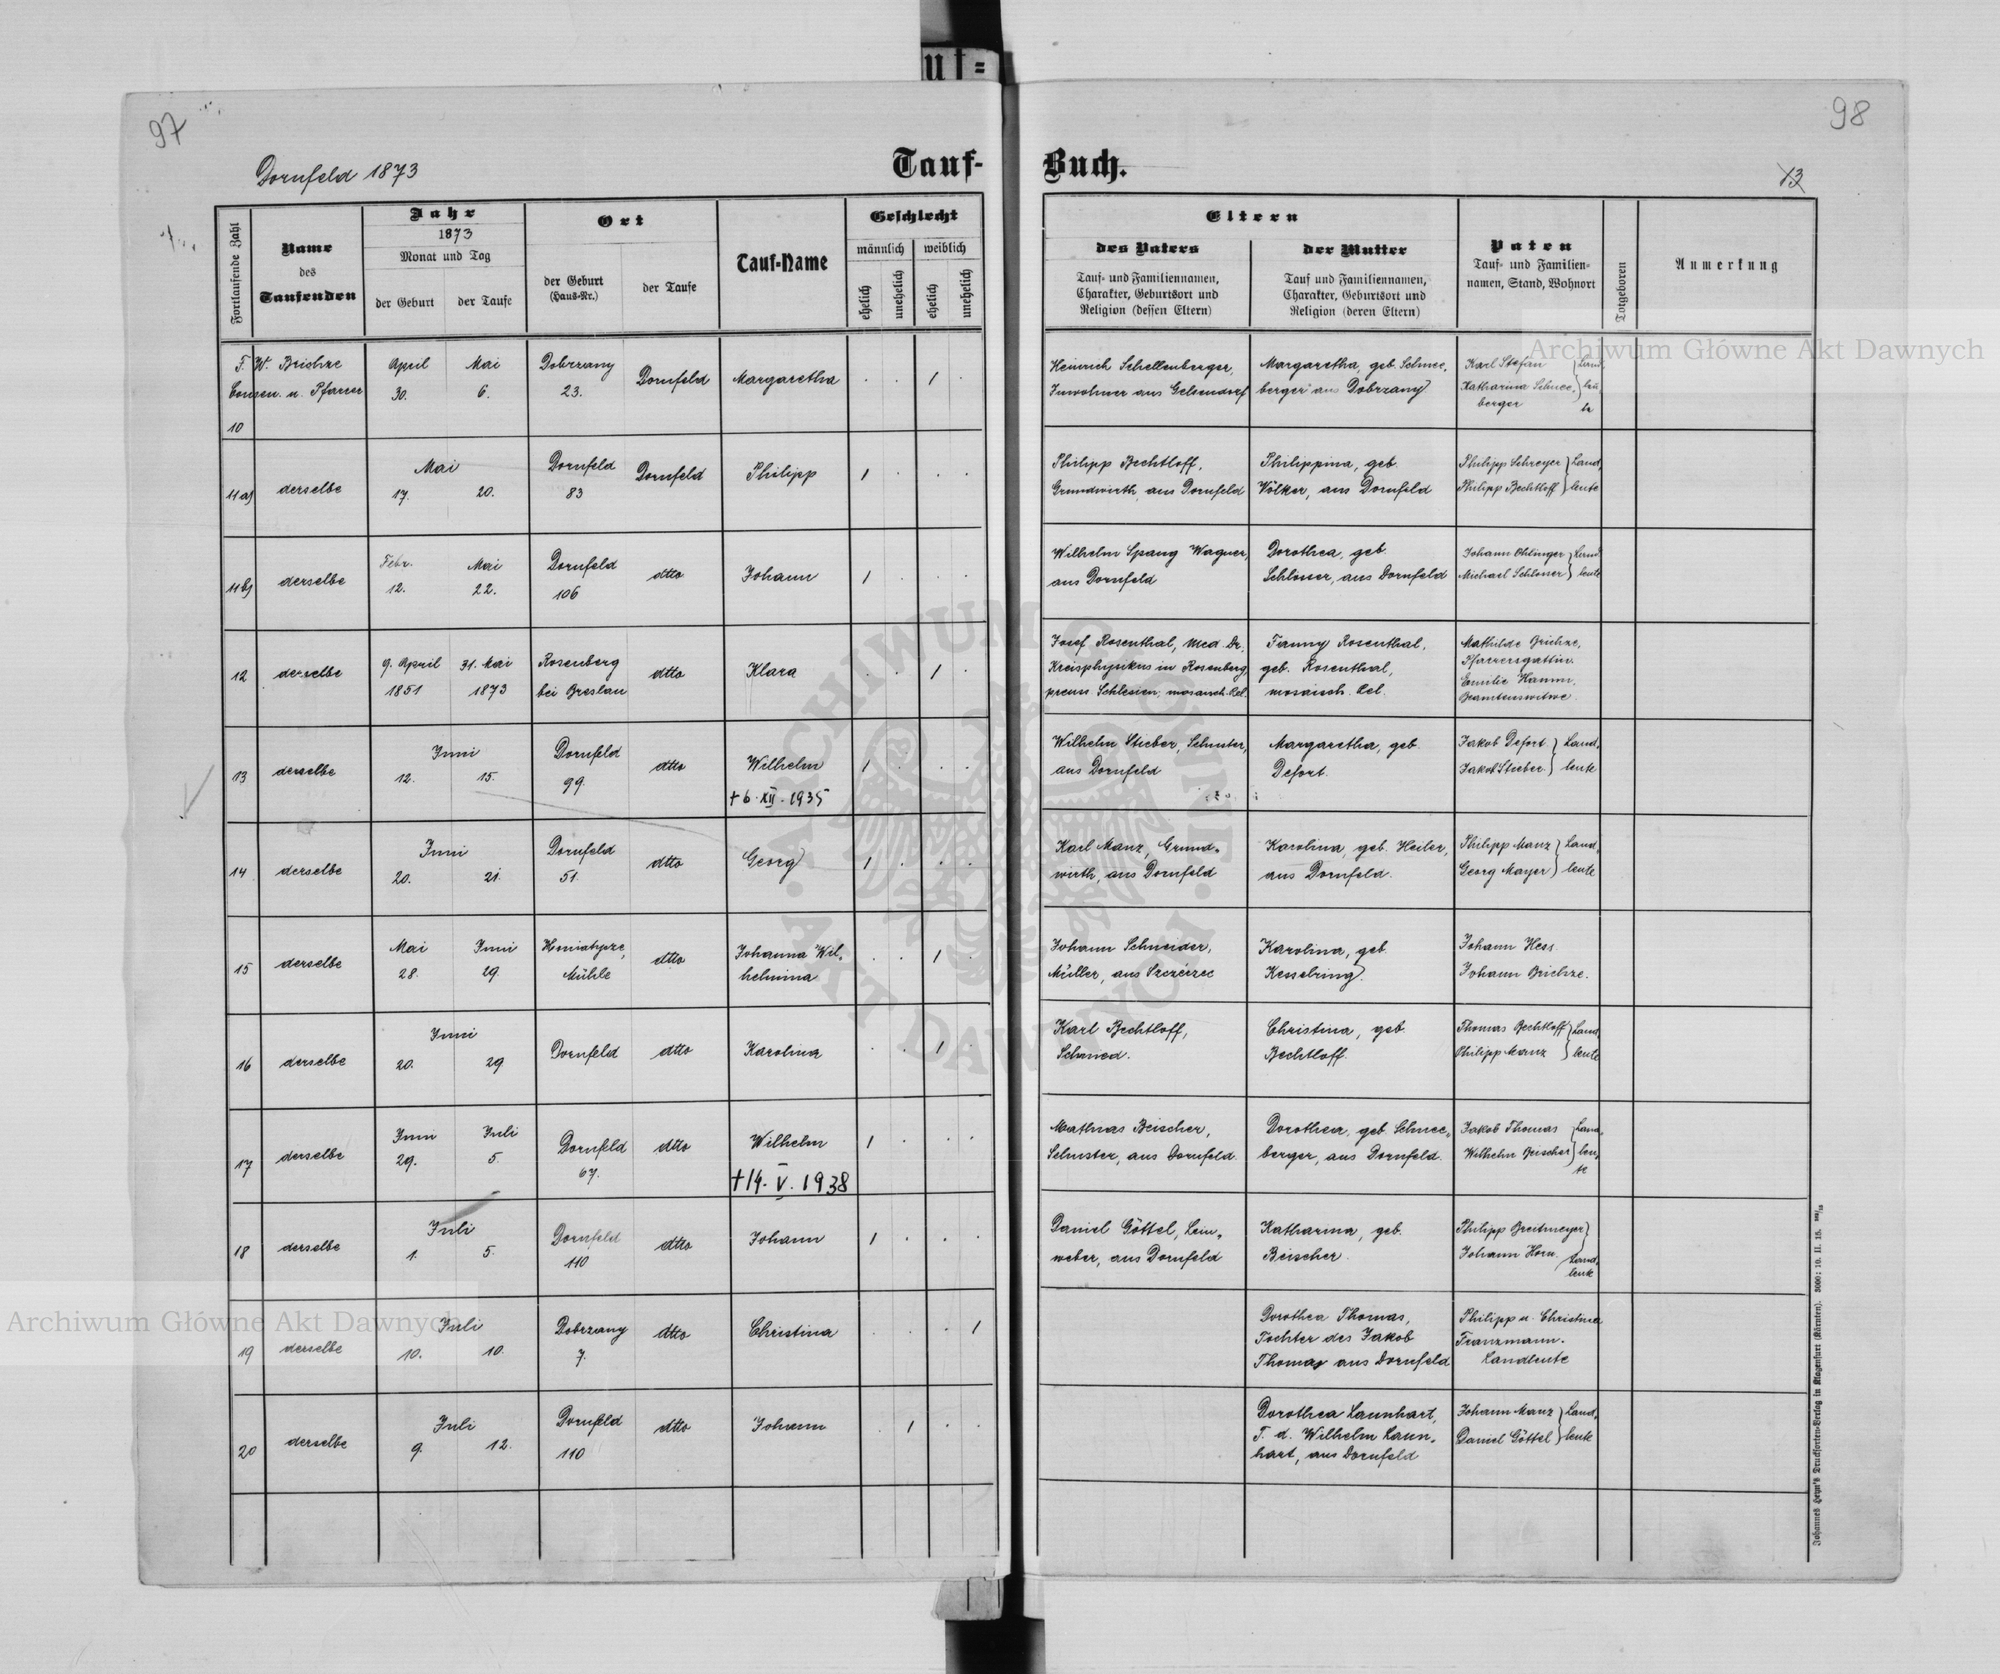 ut=
97
98
Dornfeld 1873
Tauf-
Buch.
13
Fortlaufende Zahl
Name
des
Taufenden
Jahr
1873
Monat und Tag
der Geburt
der Taufe
Ort
der Geburt
(Haus-Nr.)
der Taufe
Tauf-Name
Geschlecht
männlich
weiblich
ehelich
unehelich
ehelich
unehelich
Eltern
des Vaters
Tauf- und Familiennamen,
Charakter, Geburtsort und
Religion (dessen Eltern)
der Mutter
Tauf und Familiennamen,
Charakter, Geburtsort und
Religion (deren Eltern)
Paten
Tauf- und Familien-
namen, Stand, Wohnort
Totgeboren
Anmerkung
10
u. Pfarrer
April
30.
Mai
6.
Dobrzany
23.
Dornfeld
Margaretha
1
Heinrich Schellenberger,
Inwohner aus Gelsendorf
Margaretha, geb. Schnee-
berger aus Dobrzany
Karl Stefan
Katharina Schnee-
berger
Land-
leu-
te
11a)
derselbe
Mai
17.
20.
Dornfeld
83
Dornfeld
Philipp
1
Philipp Bechtloff,
Grundwirth, aus Dornfeld
Philippina, geb.
Völker, aus Dornfeld
Philipp Schreyer
Philipp Bechtloff
Land-
leute
11b)
derselbe
Febr.
12.
Mai
22.
Dornfeld
106
dtto
Johann
1
Wilhelm Spang Wagner,
aus Dornfeld
Dorothea, geb.
Schlosser, aus Dornfeld
Johann Ohlinger
Michael Schlosser
Land-
leute
12
derselbe
9. April
1851
31. Mai
1873
Rosenberg
bei Breslau
dtto
Klara
1
Josef Rosenthal, Med. Dr.
Kreisphysikus in Rosenberg,
preuss. Schlesien, mosaisch. Rel.
Fanny Rosenthal,
geb. Rosenthal,
mosaisch. Rel.
Mathilde
Pfarrersgattin.
Emilie Hamm,
Beamtenswitwe.
13
derselbe
Juni
12.
15.
Dornfeld
99.
dtto
Wilhelm
+ 6. XII. 1935
1
Wilhelm Stieber, Schuster,
aus Dornfeld
Margaretha, geb.
Defort.
Jakob Defort
Jakob Stieber
Land-
leute
14
derselbe
Juni
20.
21.
Dornfeld
51.
dtto
Georg
1
Karl Manz, Grund-
wirth, aus Dornfeld
Karolina, geb. Heiler,
aus Dornfeld.
Philipp Manz
Georg Mayer
Land-
leute
15
derselbe
Mai
28.
Juni
29.
Mühle
dtto
Johanna Wil-
helmina
1
Johann Schneider,
Müller, aus Szczerzec
Karolina, geb.
Kesselring.
Johann Hess.
Johann
16
derselbe
Juni
20.
29.
Dornfeld
dtto
Karolina
1
Karl Bechtloff,
Schmied.
Christina, geb.
Bechtloff.
Thomas Bechtloff
Philipp Manz
Land-
leute
17
derselbe
Juni
29.
Juli
5.
Dornfeld
67.
dtto
Wilhelm
+ 14. V. 1938
1
Mathias Beischer,
Schuster, aus Dornfeld.
Dorothea, geb. Schnee-
berger, aus Dornfeld.
Jakob Thomas
Wilhelm Beischer
Land-
leu-
te
18
derselbe
Juli
1.
5.
Dornfeld
110
dtto
Johann
1
Daniel Göttel, Lein-
weber, aus Dornfeld
Katharina, geb.
Beischer.
Philipp Breitmeyer
Johann Horn.
Land-
leute
19
derselbe
Juli
10.
10.
Dobrzany
7.
dtto
Christina
1
Dorothea Thomas,
Tochter des Jakob
Thomas aus Dornfeld
Philipp u. Christina
Franzmann.
Landleute
20
derselbe
Juli
9.
12.
Dornfeld
110
dtto
Johann
1
Dorothea Launhart,
T. d. Wilhelm Laun-
hart, aus Dornfeld
Johann Manz
Daniel Göttel
Land-
leute
Johannes Heyn's Drucksorten-Verlag in Klagenfurt (Kärnten). 3000: 10. II. 15.
Archiwum Główne Akt Dawnych
Archiwum Główne Akt Dawnych
ARCHIWUM GŁÓWNE
AKT DAWNYCH